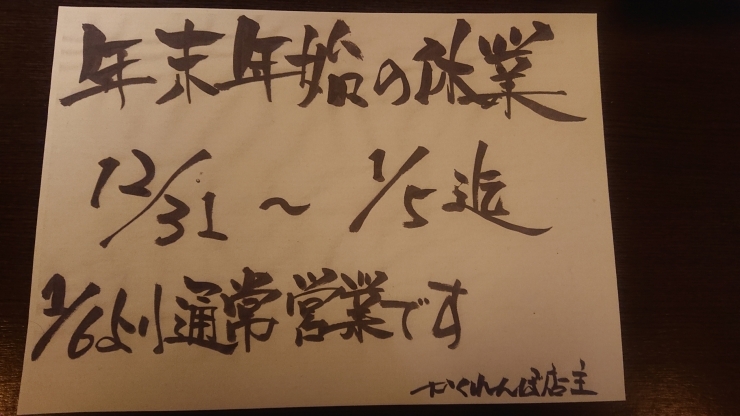 年末年始の休業
12/31 ～ 1/5 迄
1/6より通常営業です
かくれんぼ店主